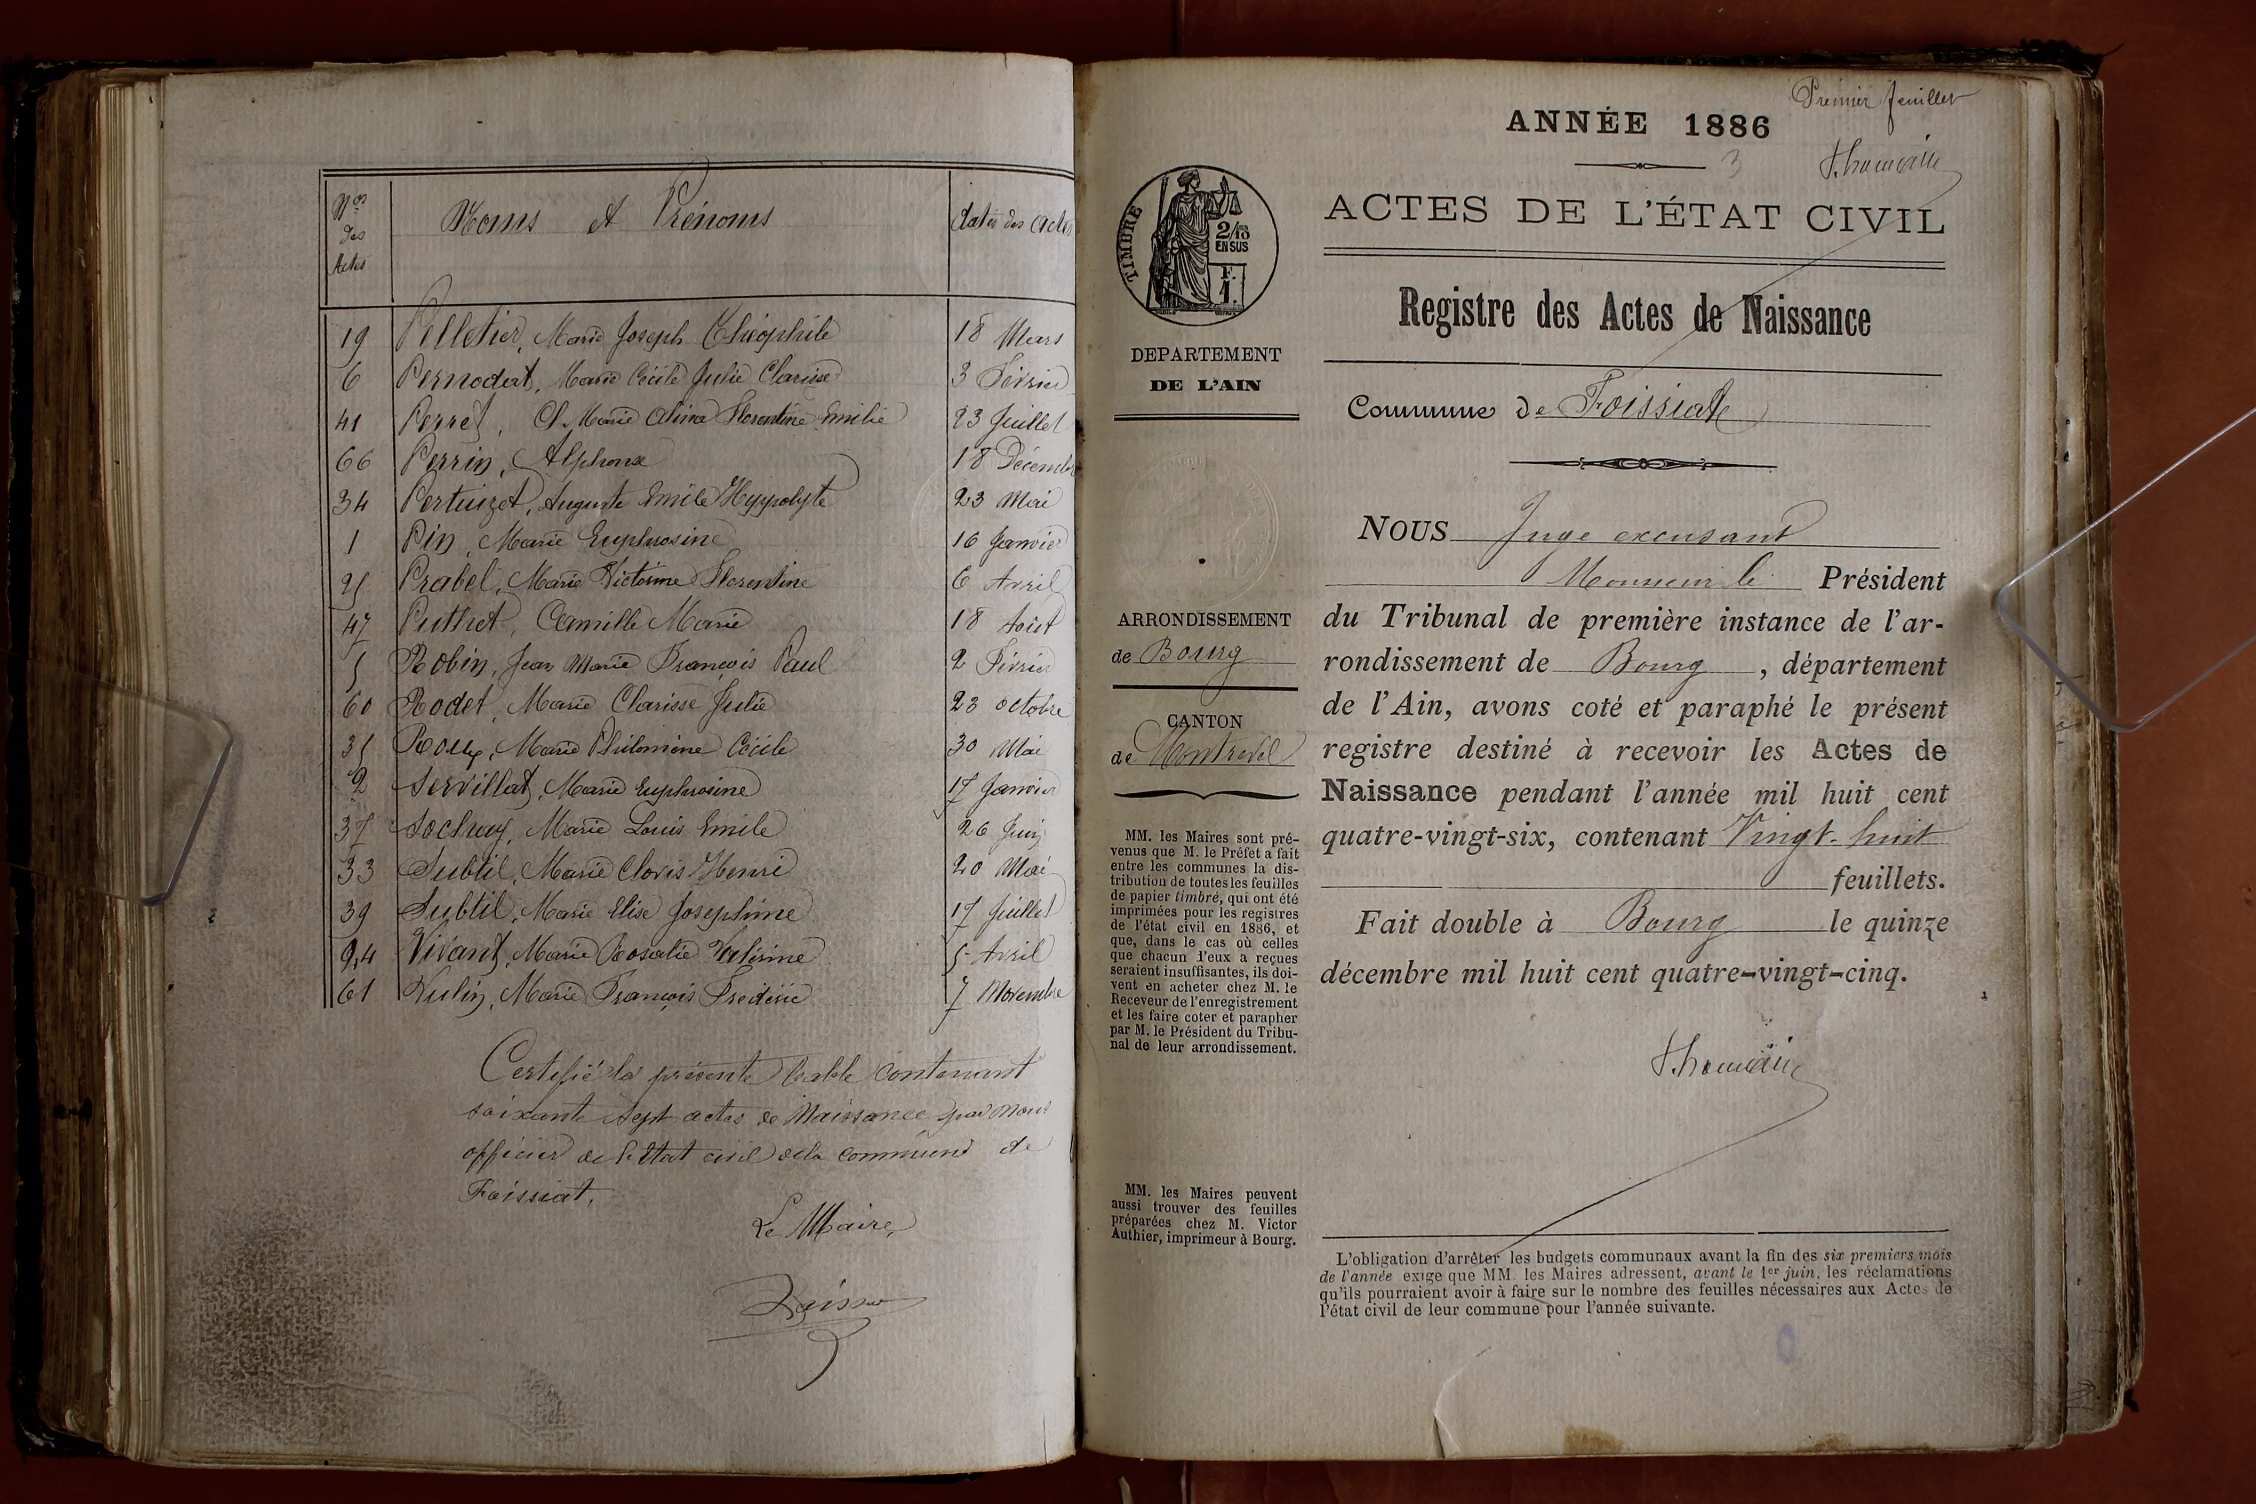 Nos des Actes
Noms et Prénoms
dates des actes
19 Pelletier, Marie Joseph Théophile 18 Mars
6 Pernodat, Marie Cécile Julie Clarisse 3 Février
41 Perret, Cl. Marie Florentine Emilie 23 Juillet
66 Perrin, Alphonse 18 Décembre
34 Pertuizet, Auguste Emile Hyppolyte 23 Mai
1 Pin, Marie Euphrosine 16 Janvier
25 Prabel, Marie Victorine Florentine 6 Avril
47 Puthet, Camille Marie 18 Août
5 Robin, Jean Marie François Paul 2 Février
60 Rodet, Marie Clarisse Julie 23 octobre
35 Roux, Marie Philomène Cécile 30 Mai
2 Servillat, Marie Euphrosine 17 Janvier
37 Marie Louis Emile 26 Juin
33 Subtil, Marie Clovis Henri 20 Mai
39 Subtil, Marie Elise Joséphine 17 Juillet
24 Vivant, Marie Rosalie 5 Avril
61 Vulin, Marie François Frédéric 7 Novembre
Certifié la présente table contenant
soixante sept actes de Naissance par nous
officier de l'Etat civil de la commune de
Foissiat.
Le Maire,
Premier feuillet
ANNÉE 1886
3
ACTES DE L'ÉTAT CIVIL
TIMBRE
2/10
EN SUS
F.
1.
Registre des Actes de Naissance
DEPARTEMENT
DE L'AIN
Commune de Foissiat
NOUS Juge excusant
Monsieur le Président
du Tribunal de première instance de l'ar-
rondissement de Bourg, département
de l'Ain, avons coté et paraphé le présent
registre destiné à recevoir les Actes de
Naissance pendant l'année mil huit cent
quatre-vingt-six, contenant Vingt-huit
feuillets.
Fait double à Bourg le quinze
décembre mil huit cent quatre-vingt-cinq.
ARRONDISSEMENT
de Bourg
CANTON
de Montrevel
MM. les Maires sont pré-
venus que M. le Préfet a fait
entre les communes la dis-
tribution de toutes les feuilles
de papier timbré, qui ont été
imprimées pour les registres
de l'état civil en 1886, et
que, dans le cas où celles
que chacun d'eux a reçues
seraient insuffisantes, ils doi-
vent en acheter chez M. le
Receveur de l'enregistrement
et les faire coter et parapher
par M. le Président du Tribu-
nal de leur arrondissement.
MM. les Maires peuvent
aussi trouver des feuilles
préparées chez M. Victor
Authier, imprimeur à Bourg.
L'obligation d'arrêter les budgets communaux avant la fin des six premiers mois
de l'année exige que MM. les Maires adressent, avant le 1er juin, les réclamations
qu'ils pourraient avoir à faire sur le nombre des feuilles nécessaires aux Actes de
l'état civil de leur commune pour l'année suivante.